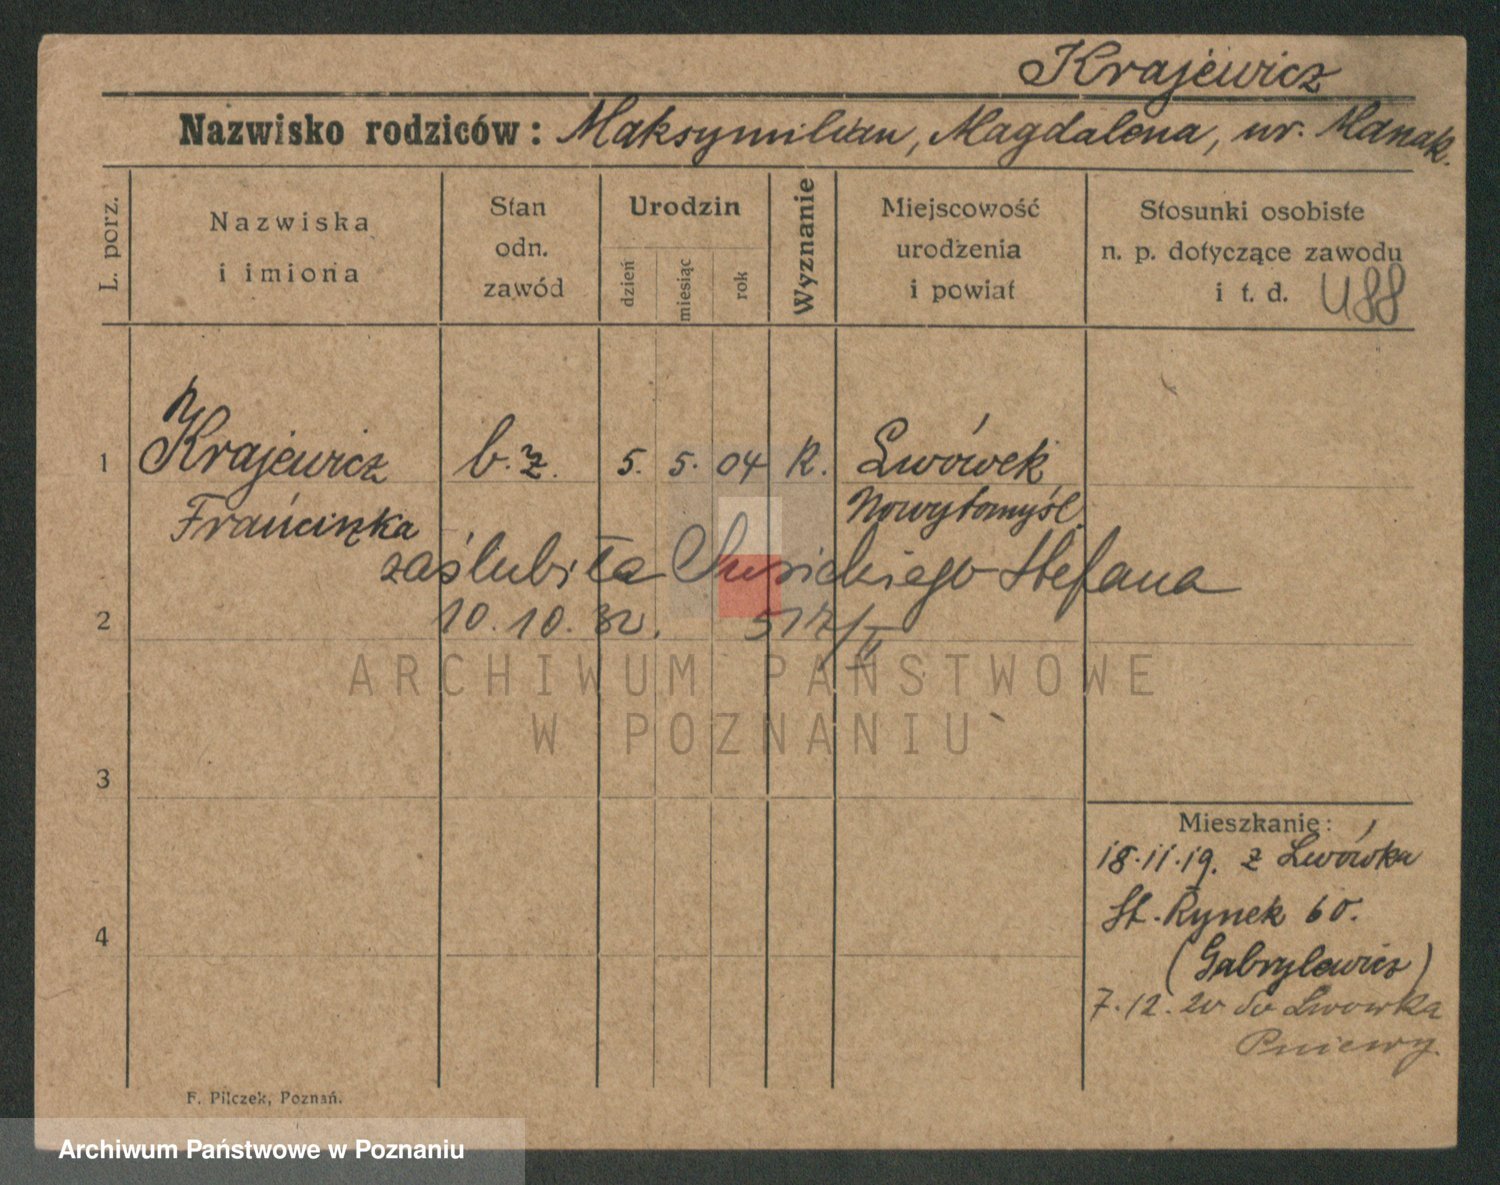 Krajewicz
Nazwisko rodziców: Maksymilian, Magdalena, ur. Manak.
L. porz.
Nazwiska
i imiona
Stan
odn.
zawód
Urodzin
dzień
miesiąc
rok
Wyznanie
Miejscowość
urodzenia
i powiat
Stosunki osobiste
n. p. dotyczące zawodu
i t. d.
488
1 Krajewicz b. z. 5. 5. 04 R. Lwówek
Franciszka Nowytomyśl
zaślubiła Susickiego Stefana
2 10. 10. 32. 517/II
3
4
Mieszkanie:
18.11.19. z Lwówka
St. Rynek 60.
(Gabrylewicz)
7.12.20 do Lwowka
Pniewy.
F. Pilczek, Poznań.
ARCHIWUM PAŃSTWOWE
W POZNANIU
Archiwum Państwowe w Poznaniu